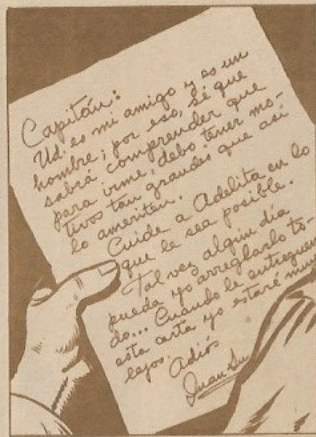 Capitán:
Ud. es mi amigo y es un
hombre; por eso, sé que
sabrá comprender que
para irme, debo tener mo-
tivos tan grandes que así
lo ameriten.
Cuide a Adelita en lo
que le sea posible.
Tal vez algún día
pueda yo arreglarlo to-
do... Cuando le entreguen
esta carta yo estaré muy
lejos.
Adiós
Juan